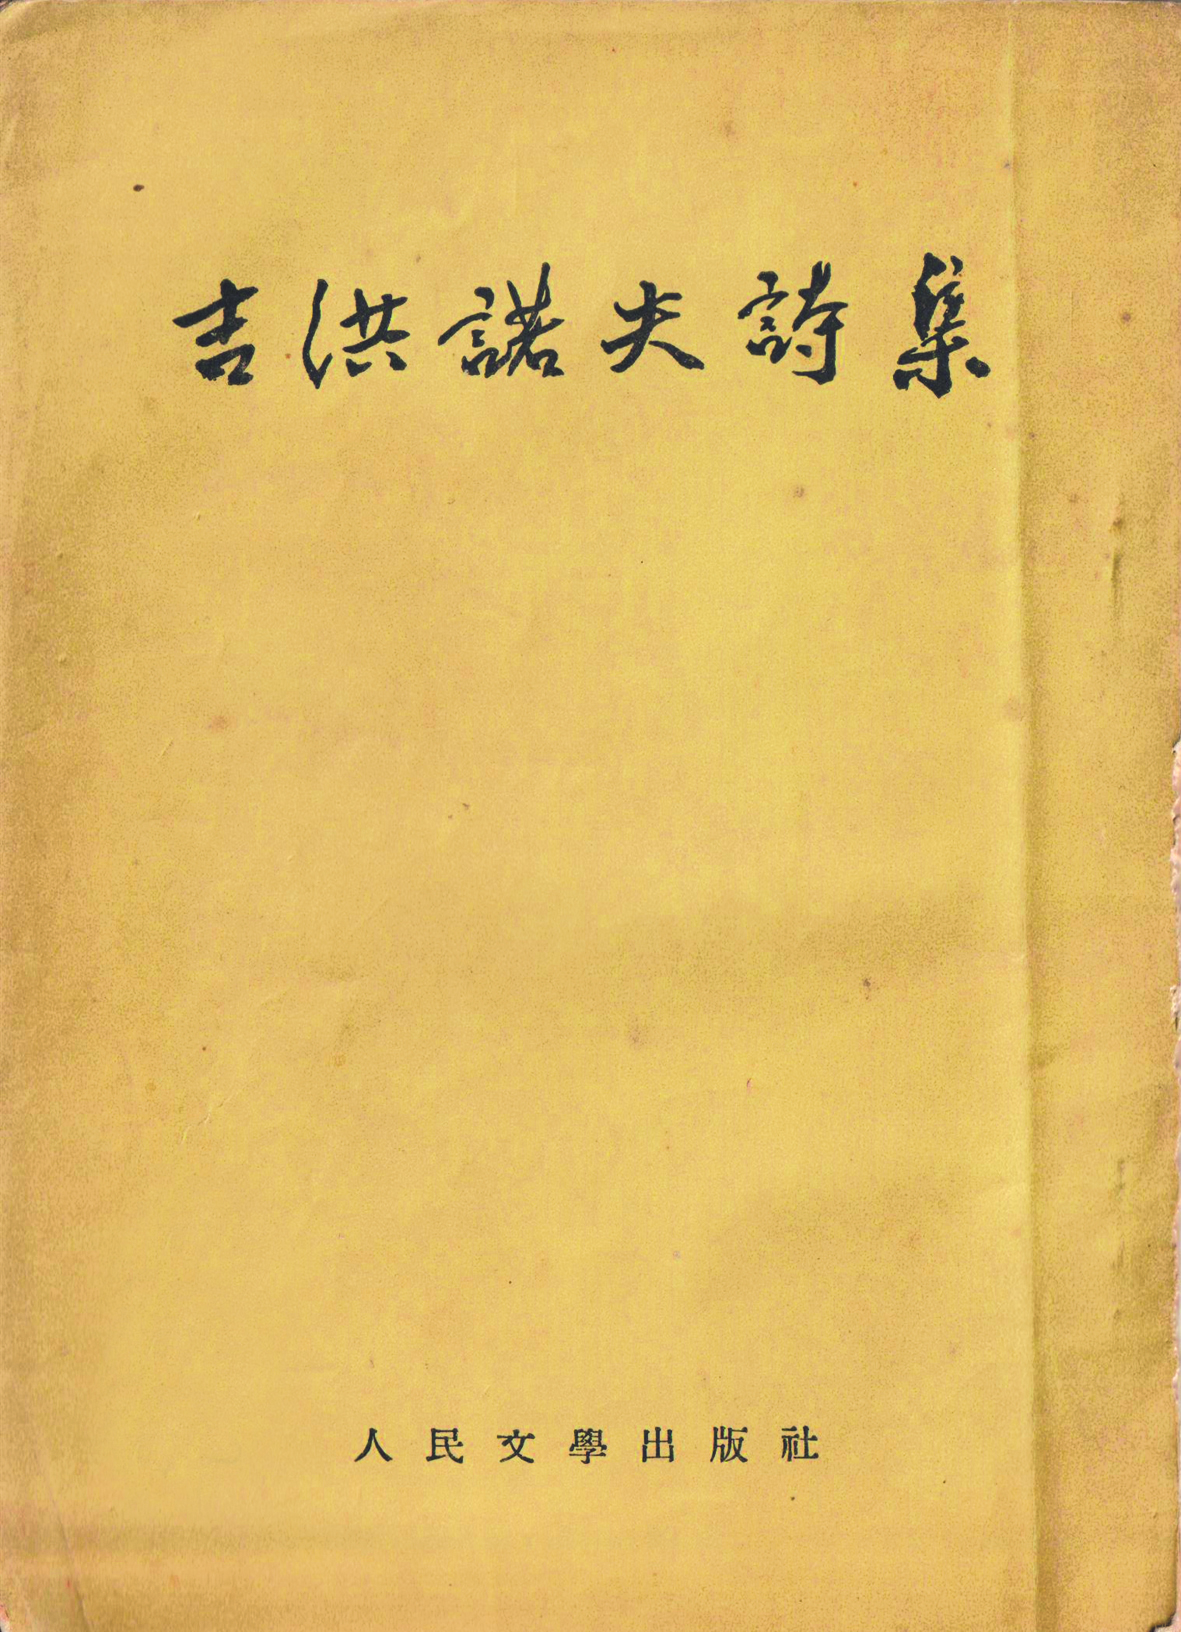 吉洪諾夫詩集
人民文學出版社